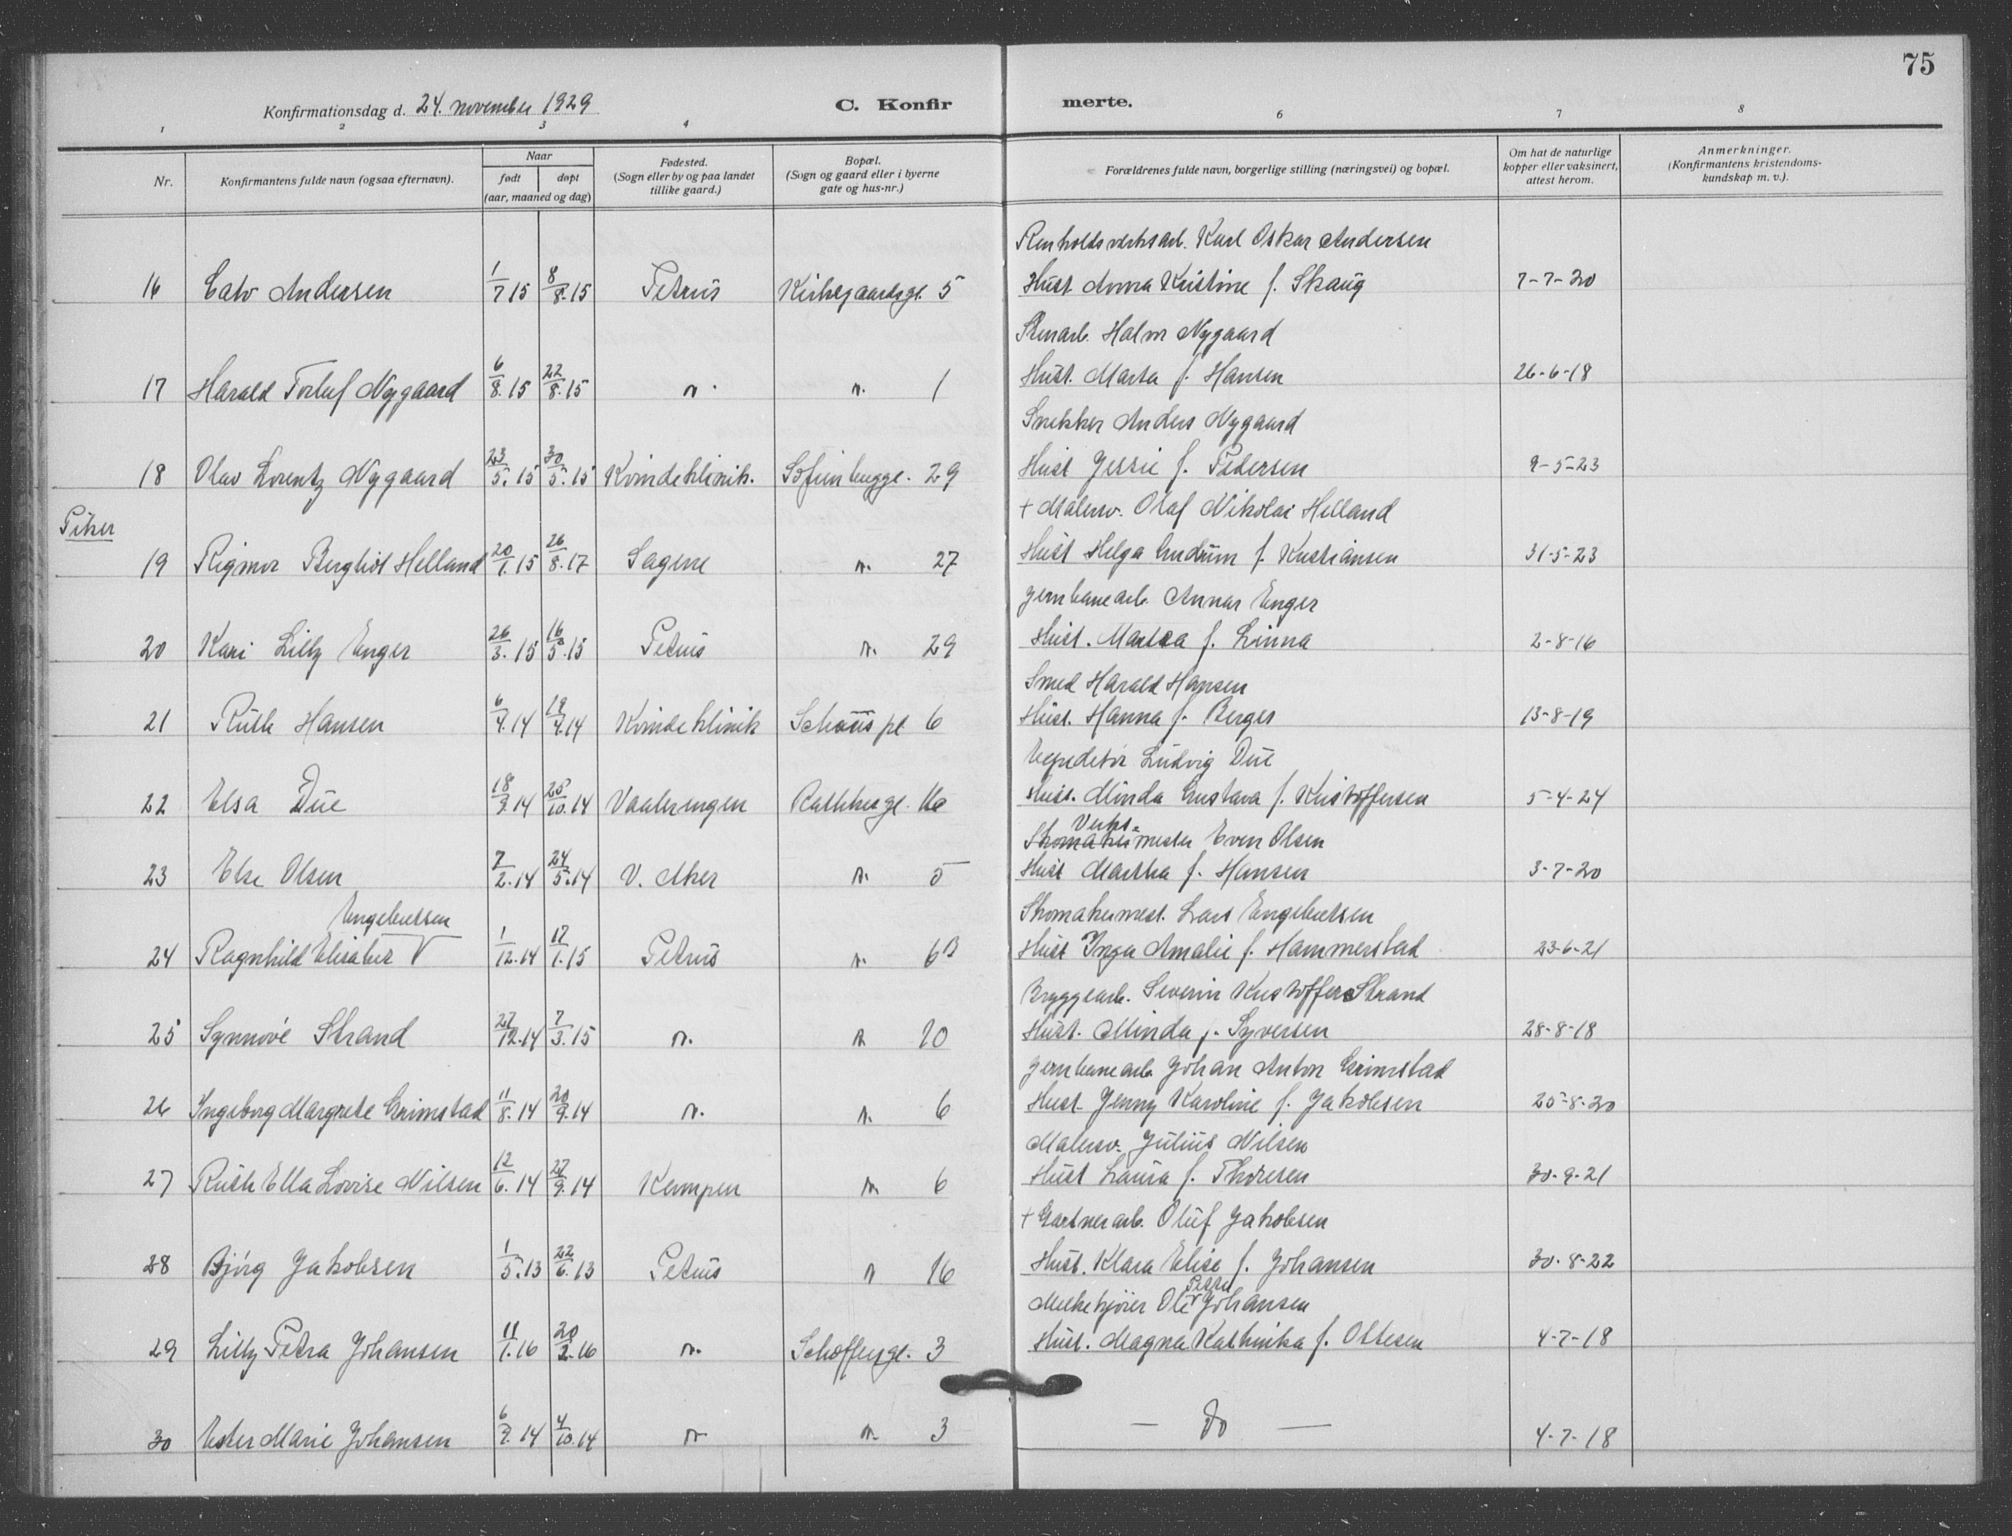 75
Konfirmationsdag d. 24. november 1929 C. Konfirmerte.
1 2 3 4 6 7 8
Nr. Konfirmantens fulde navn (ogsaa efternavn). Naar født døpt (aar, maaned og dag) Fødested. (Sogn eller by og paa landet tillike gaard.) Bopæl. (Sogn og gaard eller i byerne gate og hus-nr.) Forældrenes fulde navn, borgerlige stilling (næringsvei) og bopæl. Om hat de naturlige kopper eller vaksinert, attest herom. Anmerkninger. (Konfirmantens kristendomskundskap m. v.).
Renholdsverksarb. Karl Oskar Andersen
16 Cato Andersen 1/7 15 8/8.15 Petrus Kirkegaardsgt. 5 Hust. Anna Kristine f. Skaug 7-7-20
Stenarb. Halvor Nygaard
17 Harald Torluf Nygaard 6/8.15 22/8.15 n. n. 1 Hust. Marta f. Hansen 26-6-18
Snekker Anders Nygaard
18 Olav Lorentz Nygaard 23/5.15 30/5.15 Kvindeklinik. Sofienberggt. 29 Hust Jessie f. Pedersen 9-5-23
Piker
+ Malersv. Olaf Nikolai Helland
19 Rigmor Bergliot Helland 20/1.15 26/8.17 Sagene n. 27 Hust Helga Gudrun f. Kristiansen 31-5-23
Jernbanearb. Annar Enger
20 Kari Lilly Enger 26/3.15 16/5.15 Petrus n. 29 Hust. Martea f. Linna 2-8-16
Smed Harald Hansen
21 Ruth Hansen 6/4.14 19/4.14 Kvindeklinik Schous pl 6 Hust. Hanna f. Berger 13-8-19
Expeditør Ludvig Due
22 Elsa Due 18/9.14 25/10.14 Vaalerengen Rathkesgt. 16 Hust. Minda Gustava f. Kristoffersen 5-4-24
Verks-
Skomakermester Even Olsen
23 Else Olsen 7/2.14 24/5.14 V. Aker n. 5 Hust Martha f. Hansen 3-7-20
Engebretsen
Skomakermest. Lars Engebretsen
24 Ragnhild Elisabet V 1/12.14 17/1.15 Petrus n. 6B Hust Inga Amalie f. Hammerstad 23-6-21
Bryggearb. Severin Kristoffer Strand
25 Synnøve Strand 27/12.14 7/3.15 n. n 10 Hust. Minda f. Syversen 28-8-18
Jernbanearb. Johan Anton Grimstad
26 Ingeborg Margrete Grimstad 11/8.14 20/9.14 n. n. 6 Hust. Jenny Karoline f. Jakobsen 25-8-20
Malersv. Julius Nilsen
27 Ruth Ella Lovise Nilsen 12/6.14 27/9.14 Kampen n 6 Hust Laura f. Thoresen 30-9-21
+ Gartnerarb. Oluf Jakobsen
28 Bjørg Jakobsen 1/5.13 22/6.13 Petrus n 16 Hust. Klara Elise f. Johansen 30-8-22
Melkekjører Ole Johansen
29 Lilly Petra Johansen 11/1.16 20/2.16 n. Schoffergt. 3 Hust. Magna Kathinka f. Ottesen 4-7-18
30 Ester Marie Johansen 6/9.14 4/10.14 n n. 3 — Do — 4-7-18